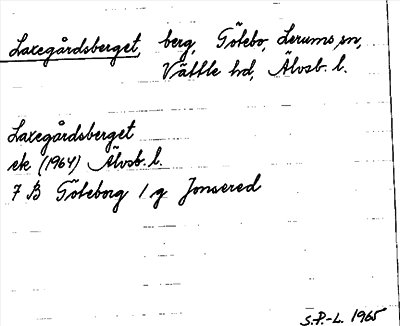 Laxegårdsberget, berg, Götebo, Lerums sn,
Vättle hd, Älvsb. l.
Laxegårdsberget
ek (1964) Älvsb. l.
7 B Göteborg 1 g Jonsered
S.P.-L. 1965